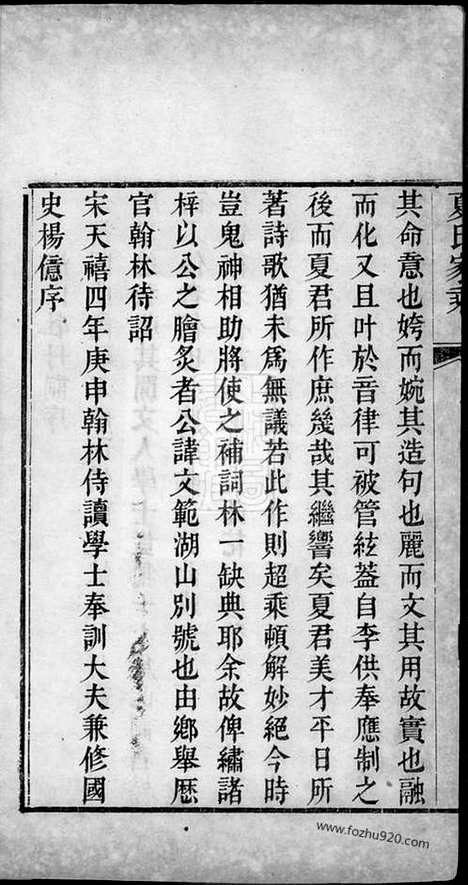 夏氏家乘
其命意也姱而婉其造句也麗而文其用故實也融
而化又且叶於音律可被管絃葢自李供奉應制之
後而夏君所作庶幾哉其繼響矣夏君美才平日所
著詩歌猶未爲無議若此作則超乘頓解妙絕今時
豈鬼神相助將使之補詞林一缺典耶余故俾繡諸
梓以公之膾炙者公諱文範湖山別號也由鄉舉歷
官翰林待詔
宋天禧四年庚申翰林侍讀學士奉訓大夫兼修國
史楊億序
www.fozhu920.com